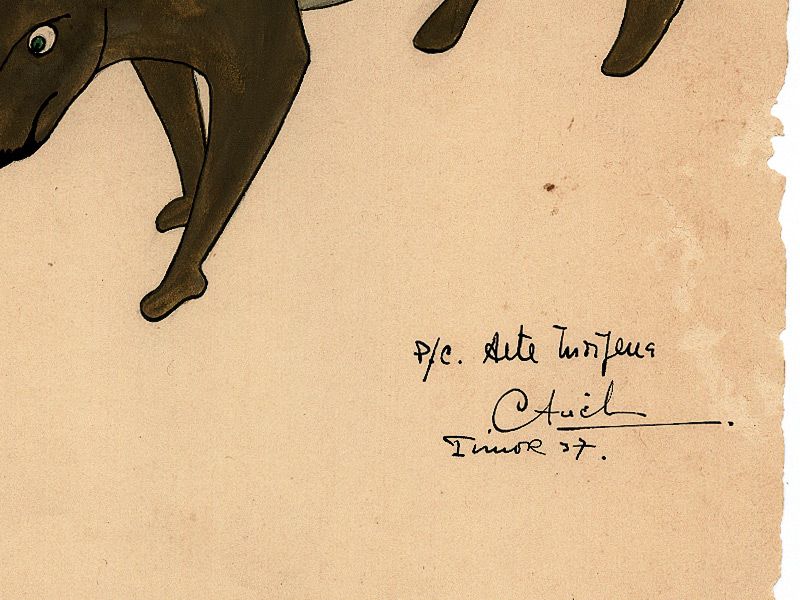 P/C. Arte Indígena
Timor 37.